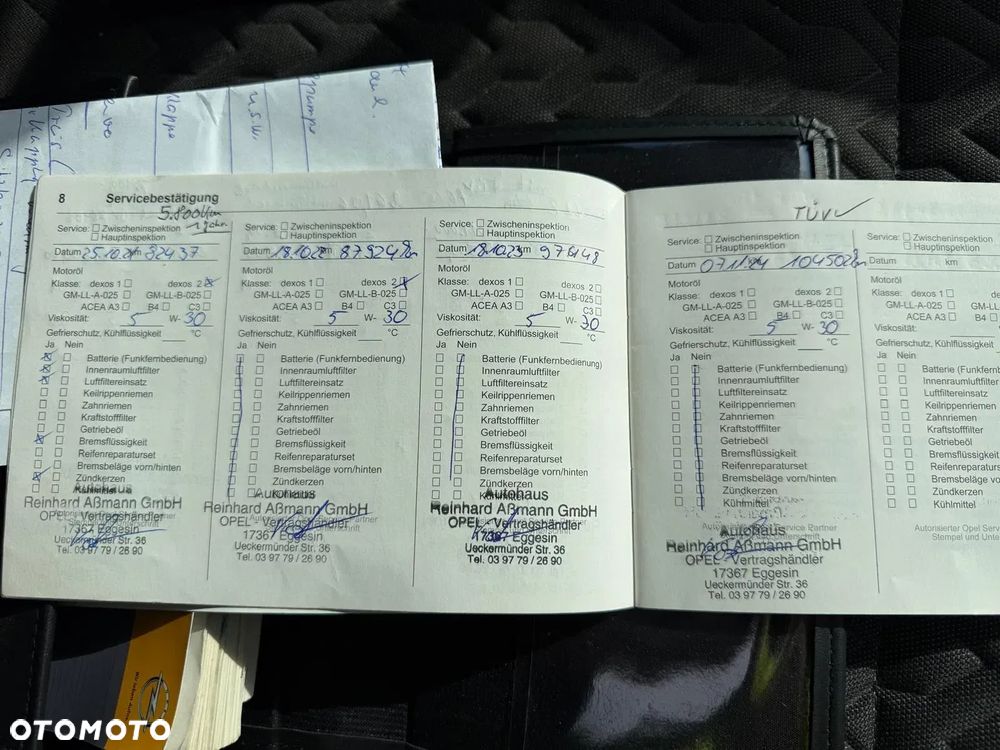 8 Servicebestätigung
5.800km
Service: Zwischeninspektion
Hauptinspektion
Datum 25.10.21 km 82437
Motoröl
Klasse: dexos 1 dexos 2
GM-LL-A-025 GM-LL-B-025
ACEA A3 B4 C3
Viskosität: 5 W- 30
Gefrierschutz, Kühlflüssigkeit °C
Ja Nein
Batterie (Funkfernbedienung)
Innenraumluftfilter
Luftfiltereinsatz
Keilrippenriemen
Zahnriemen
Kraftstofffilter
Getriebeöl
Bremsflüssigkeit
Reifenreparaturset
Bremsbeläge vorn/hinten
Zündkerzen
Kühlmittel
Autohaus
Reinhard Aßmann GmbH
OPEL - Vertragshändler
17367 Eggesin
Ueckermünder Str. 36
Tel. 03 97 79 / 26 90
Service: Zwischeninspektion
Hauptinspektion
Datum 18.10.22 km 87924km
Motoröl
Klasse: dexos 1 dexos 2
GM-LL-A-025 GM-LL-B-025
ACEA A3 B4 C3
Viskosität: 5 W- 30
Gefrierschutz, Kühlflüssigkeit °C
Ja Nein
Batterie (Funkfernbedienung)
Innenraumluftfilter
Luftfiltereinsatz
Keilrippenriemen
Zahnriemen
Kraftstofffilter
Getriebeöl
Bremsflüssigkeit
Reifenreparaturset
Bremsbeläge vorn/hinten
Zündkerzen
Autohaus
Reinhard Aßmann GmbH
OPEL - Vertragshändler
17367 Eggesin
Ueckermünder Str. 36
Tel. 03 97 79 / 26 90
Service: Zwischeninspektion
Hauptinspektion
Datum 18.10.23 km 97614 8
Motoröl
Klasse: dexos 1 dexos 2
GM-LL-A-025 GM-LL-B-025
ACEA A3 B4 C3
Viskosität: 5 W- 30
Gefrierschutz, Kühlflüssigkeit °C
Ja Nein
Batterie (Funkfernbedienung)
Innenraumluftfilter
Luftfiltereinsatz
Keilrippenriemen
Zahnriemen
Kraftstofffilter
Getriebeöl
Bremsflüssigkeit
Reifenreparaturset
Bremsbeläge vorn/hinten
Zündkerzen
Autohaus
Reinhard Aßmann GmbH
OPEL - Vertragshändler
17367 Eggesin
Ueckermünder Str. 36
Tel. 03 97 79 / 26 90
TÜV
Service: Zwischeninspektion
Hauptinspektion
Datum 07.11.24 104502km
Motoröl
Klasse: dexos 1 dexos 2
GM-LL-A-025 GM-LL-B-025
ACEA A3 B4 C3
Viskosität: 5 W- 30
Gefrierschutz, Kühlflüssigkeit °C
Ja Nein
Batterie (Funkfernbedienung)
Innenraumluftfilter
Luftfiltereinsatz
Keilrippenriemen
Zahnriemen
Kraftstofffilter
Getriebeöl
Bremsflüssigkeit
Reifenreparaturset
Bremsbeläge vorn/hinten
Zündkerzen
Kühlmittel
Autohaus
Reinhard Aßmann GmbH
OPEL - Vertragshändler
17367 Eggesin
Ueckermünder Str. 36
Tel. 03 97 79 / 26 90
Service: Zwischeninspektion
Hauptinspektion
Datum km
Motoröl
Klasse: dexos 1
GM-LL-A-025
ACEA A3
Viskosität:
Gefrierschutz, Kühlflüssigkeit
Ja Nein
Batterie
Innenraumluftfilter
Luftfiltereinsatz
Keilrippenriemen
Zahnriemen
Kraftstofffilter
Getriebeöl
Bremsflüssigkeit
Bremsbeläge
Zündkerzen
Kühlmittel
Autorisierter Opel Service
OTOMOTO